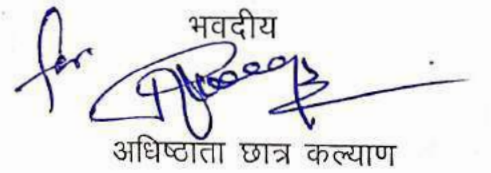 भवदीय
for
अधिष्ठाता छात्र कल्याण